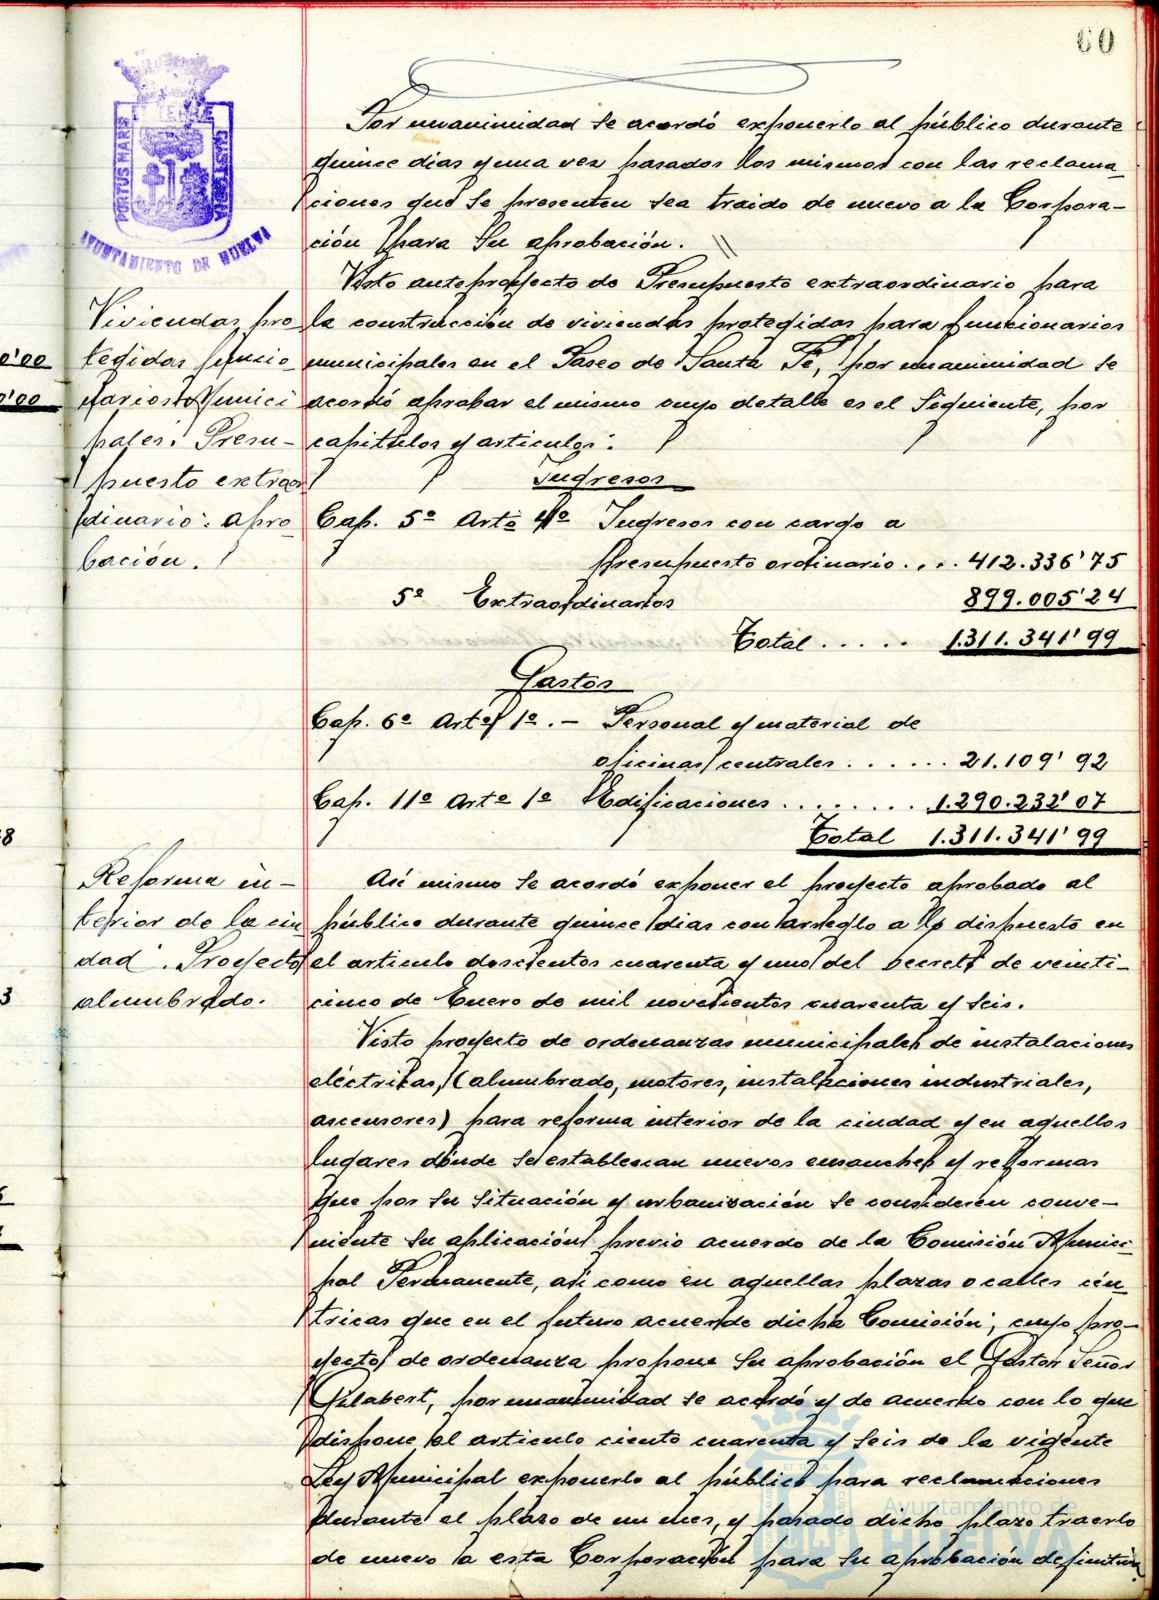 60
PORTUS MARIS ET TERRE CUSTODIA
AYUNTAMIENTO DE HUELVA
Por unanimidad se acordó exponerlo al público durante
quince dias y una vez pasados los mismos con las reclama-
ciones que se presenten sea traido de nuevo a la Corpora-
ción para su aprobación.
Viviendas pro-
tegidas funcio-
narios Munici
pales: Presu-
puesto extraor
dinario: apro-
bación.
Visto anteproyecto de Presupuesto extraordinario para
la construcción de viviendas protegidas para funcionarios
municipales en el Paseo de Santa Fé, por unanimidad se
acordó aprobar el mismo cuyo detalle es el siguiente, por
capitulos y articulos:
Ingresos
Cap. 5º Artº 4º Ingresos con cargo a
presupuesto ordinario.... 412.336'75
5º Extraordinarios 899.005'24
Total..... 1.311.341'99
Gastos
Cap. 6º Artº 1º.- Personal y material de
oficinas centrales....... 21.109'92
Cap. 11º Artº 1º Edificaciones......... 1.290.232'07
Total 1.311.341'99
Reforma in-
terior de la ciu
dad. Proyecto
alumbrado.
Asi mismo se acordó exponer el proyecto aprobado al
público durante quince dias con arreglo a lo dispuesto en
el articulo doscientos cuarenta y uno del Decreto de veinti-
cinco de Enero de mil novecientos cuarenta y seis.
Visto proyecto de ordenanzas municipales de instalaciones
eléctricas, (alumbrado, motores, instalaciones industriales,
ascensores) para reforma interior de la ciudad y en aquellos
lugares donde se establezcan nuevos ensanches y reformas
que por su situación y urbanización se consideren conve-
niente su aplicación previo acuerdo de la Comisión Munici-
pal Permanente, asi como en aquellas plazas o calles cén-
tricas que en el futuro acuerde dicha Comisión; cuyo pro-
yecto de ordenanza propone su aprobación el Gestor Señor
Gilabert, por unanimidad se acordó y de acuerdo con lo que
dispone el articulo ciento cuarenta y seis de la vigente
Ley Municipal exponerlo al público para reclamaciones
durante el plazo de un mes, y pasado dicho plazo traerlo
de nuevo a esta Corporación para su aprobación definitiva.
Ayuntamiento de
HUELVA